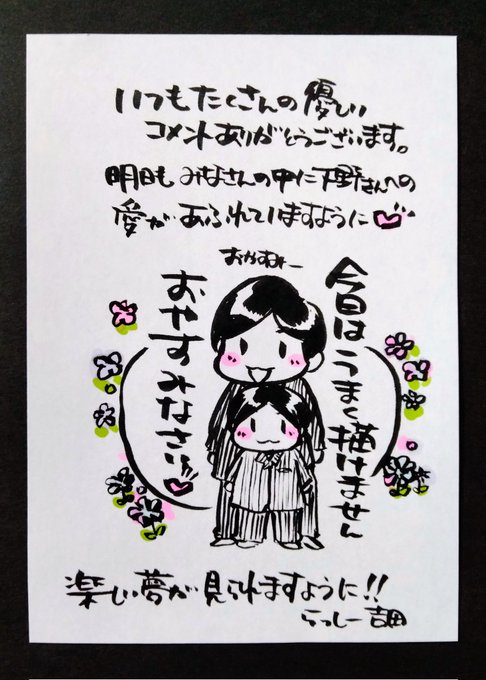 いつもたくさんの優しい
コメントありがとうございます。
明日も みなさんの中に下野さんへの
愛があふれていますように
おやすみー
今日はうまく描けません
おやすみなさい
楽しい夢が見られますように!!
らっしー吉田